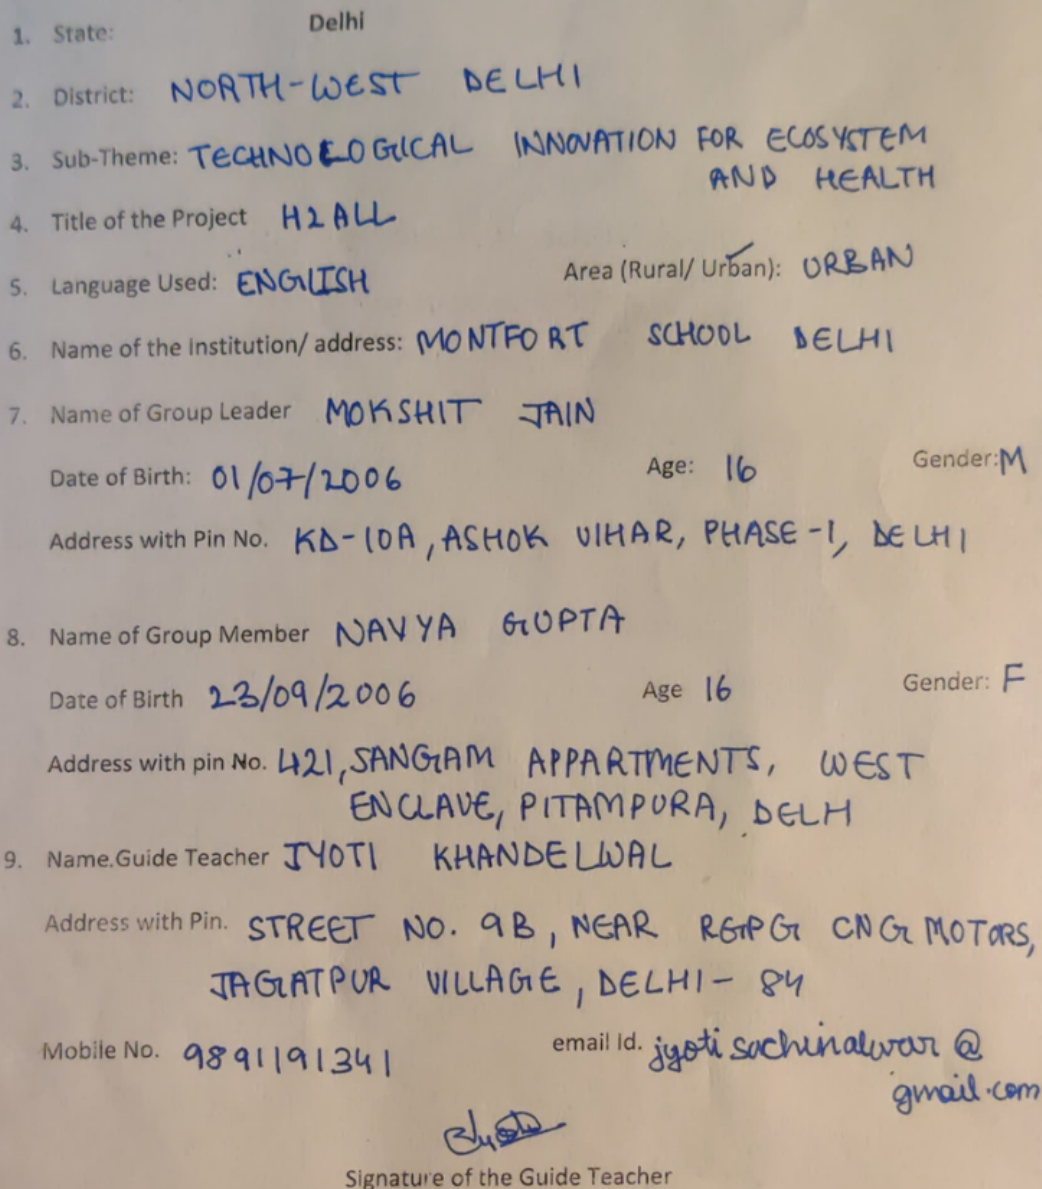 1. State: Delhi
2. District: NORTH-WEST DELHI
3. Sub-Theme: TECHNOLOGICAL INNOVATION FOR ECOSYSTEM
AND HEALTH
4. Title of the Project H2ALL
5. Language Used: ENGLISH Area (Rural/ Urban): URBAN
6. Name of the Institution/ address: MONTFORT SCHOOL DELHI
7. Name of Group Leader MOKSHIT JAIN
Date of Birth: 01/07/2006 Age: 16 Gender: M
Address with Pin No. KD-10A, ASHOK VIHAR, PHASE-1, DELHI
8. Name of Group Member NAVYA GUPTA
Date of Birth 23/09/2006 Age 16 Gender: F
Address with pin No. 421, SANGAM APPARTMENTS, WEST
ENCLAVE, PITAMPURA, DELH
9. Name.Guide Teacher JYOTI KHANDELWAL
Address with Pin. STREET NO. 9B, NEAR RGPG CNG MOTORS,
JAGATPUR VILLAGE, DELHI- 84
Mobile No. 9891191341 email Id. jyotisachinalwar@
gmail.com
Signature of the Guide Teacher